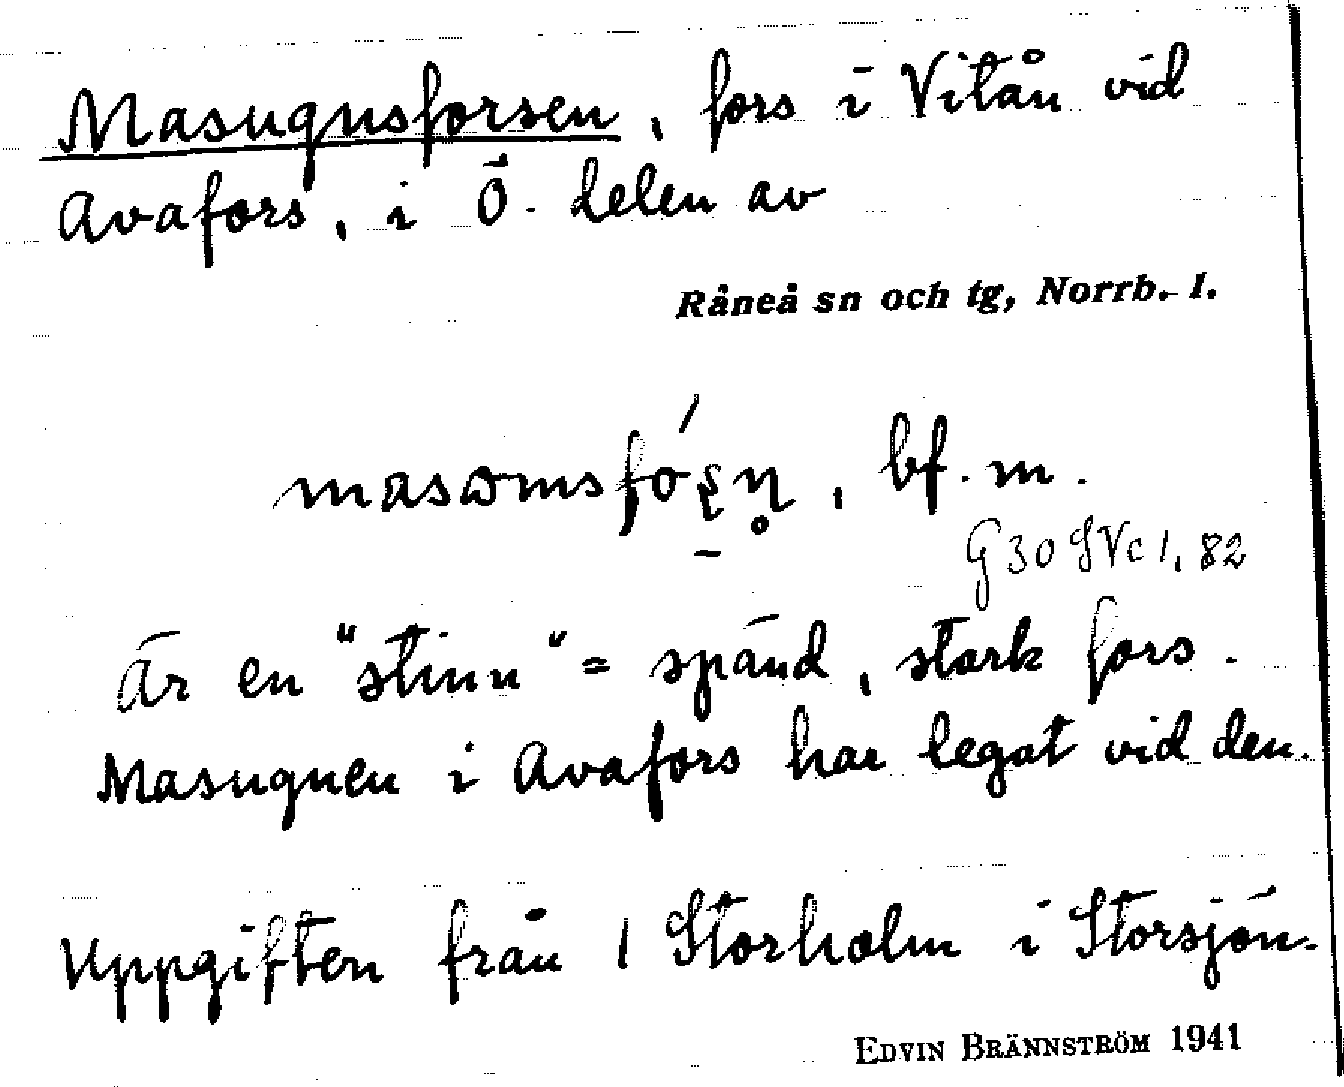 Masugnsforsen, fors i Vitån vid
Avafors, i Ö. delen av
Råneå sn och tg, Norrb. l.
bf. m.
G 30 SVc 1, 82
Är en "stinn" = spänd, stark fors.
Masugnen i Avafors har legat vid den.
Uppgiften från 1 Storholm i Storsjön.
EDVIN BRÄNNSTRÖM 1941